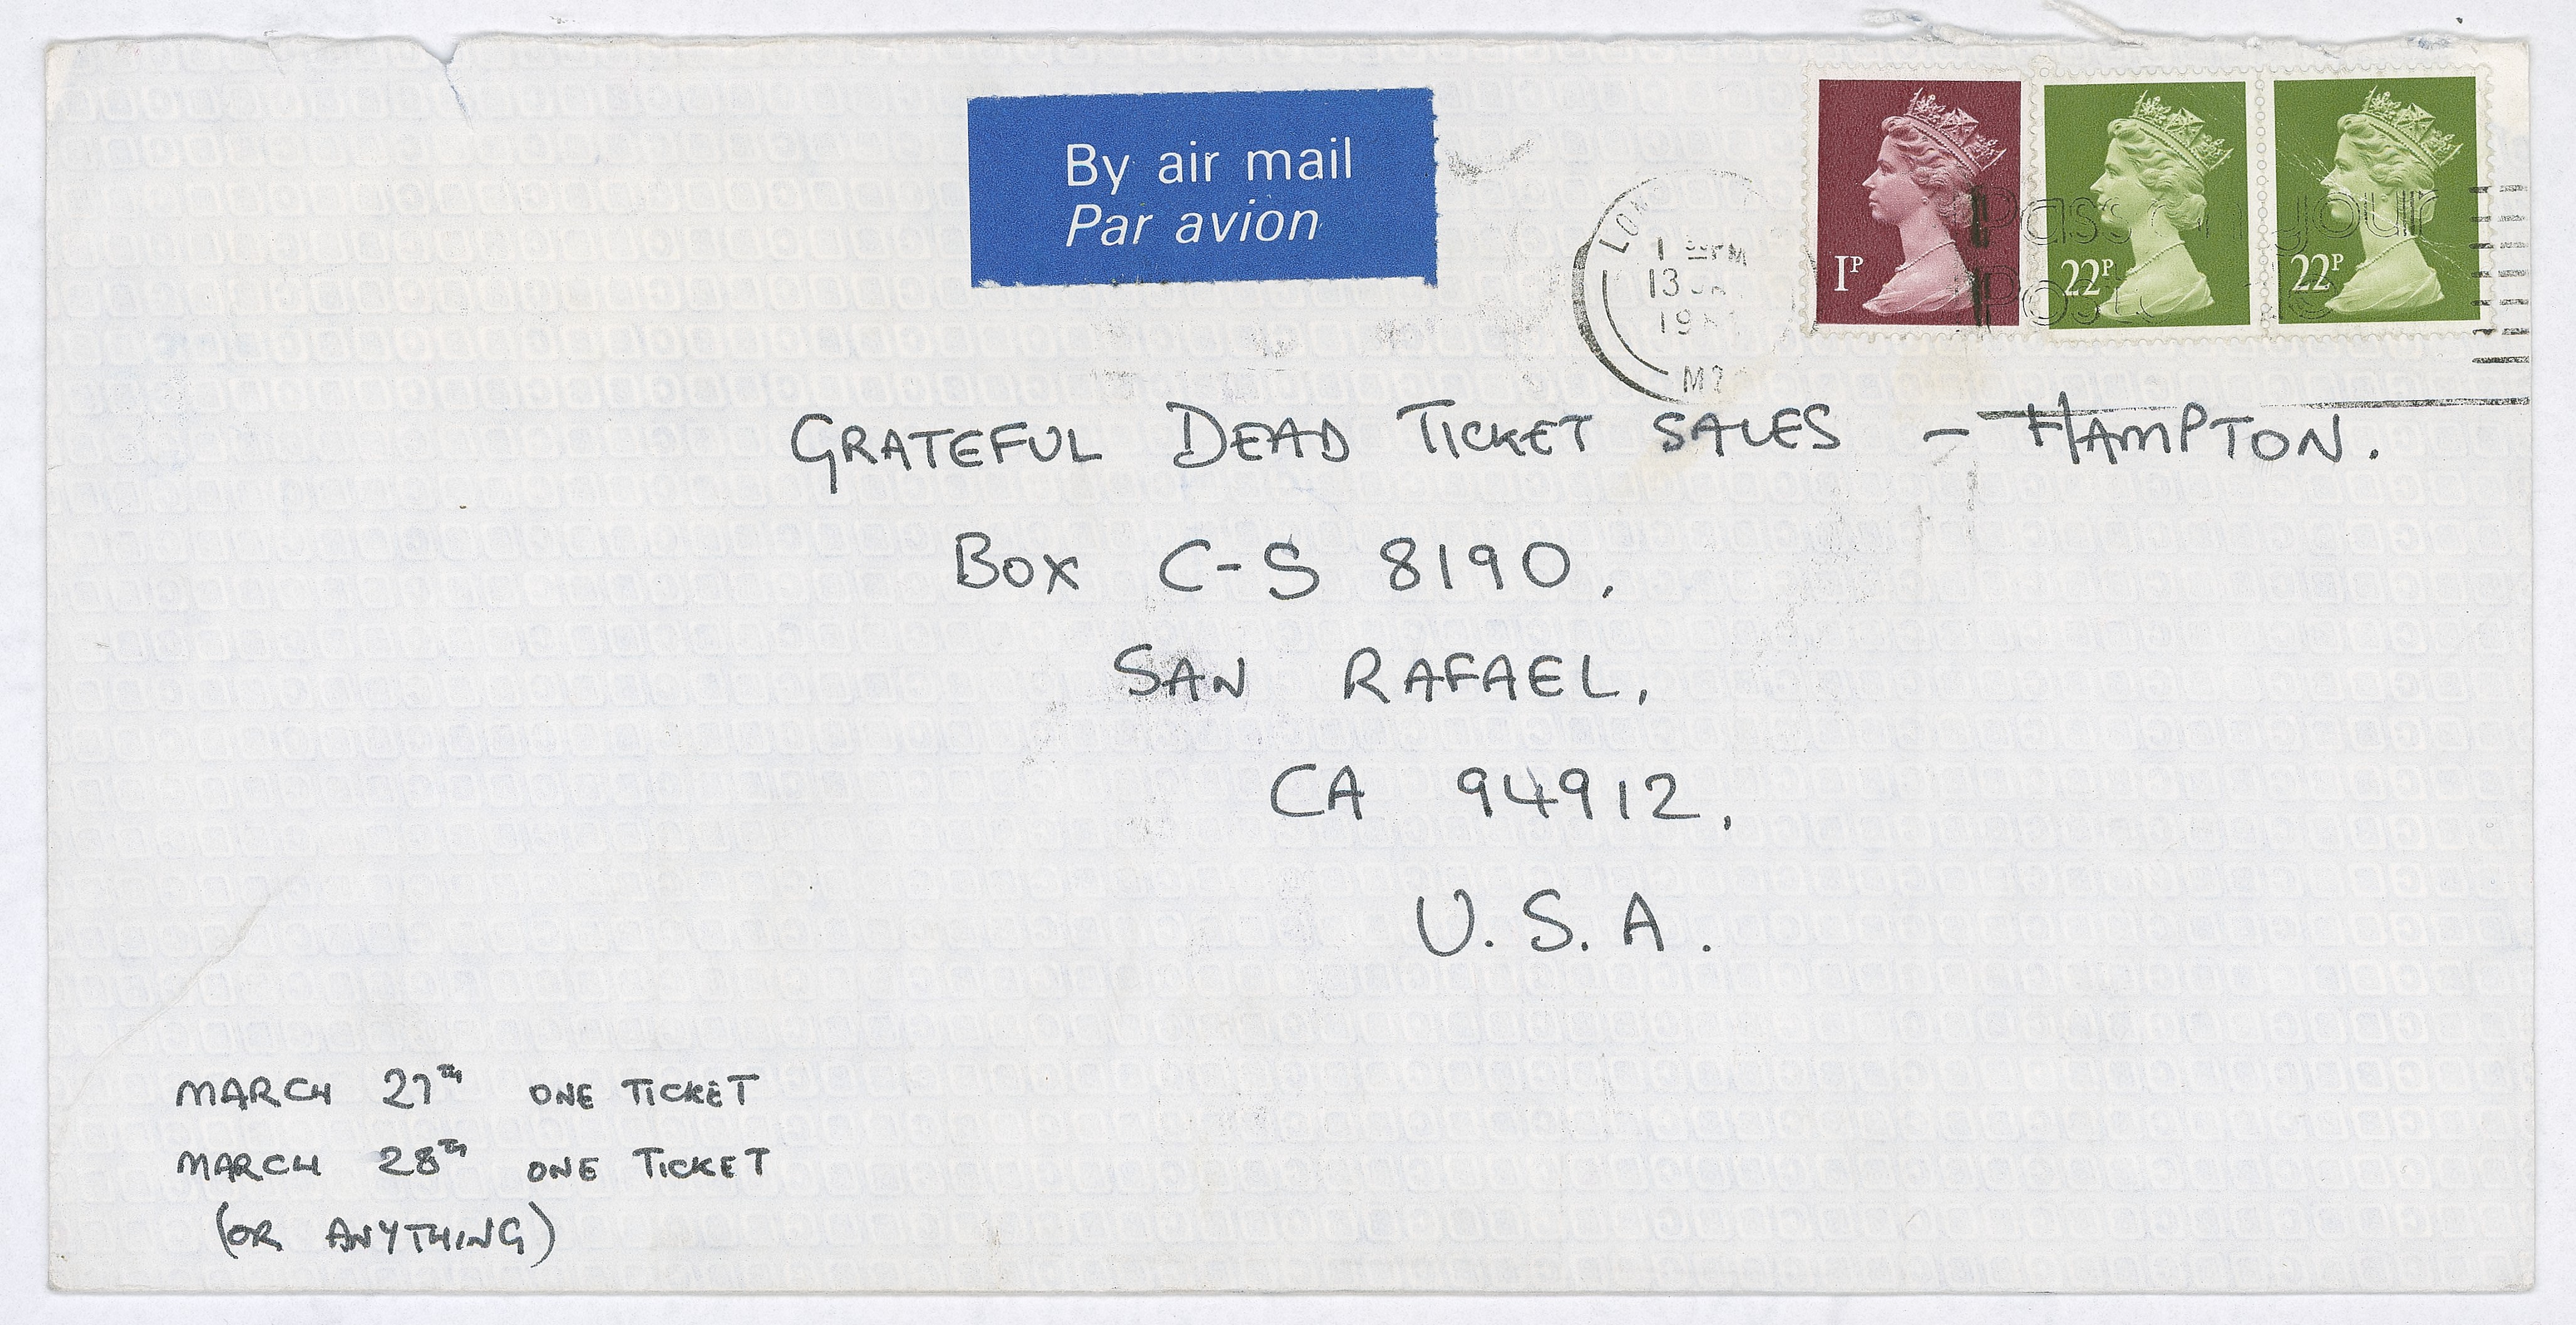 By air mail
Par avion
1P
22P
22P
Pass on your
13
19
GRATEFUL DEAD TICKET SALES - HAMPTON.
BOX C-S 8190,
SAN RAFAEL,
CA 94912,
U.S.A.
MARCH 27TH ONE TICKET
MARCH 28TH ONE TICKET
(OR ANYTHING)